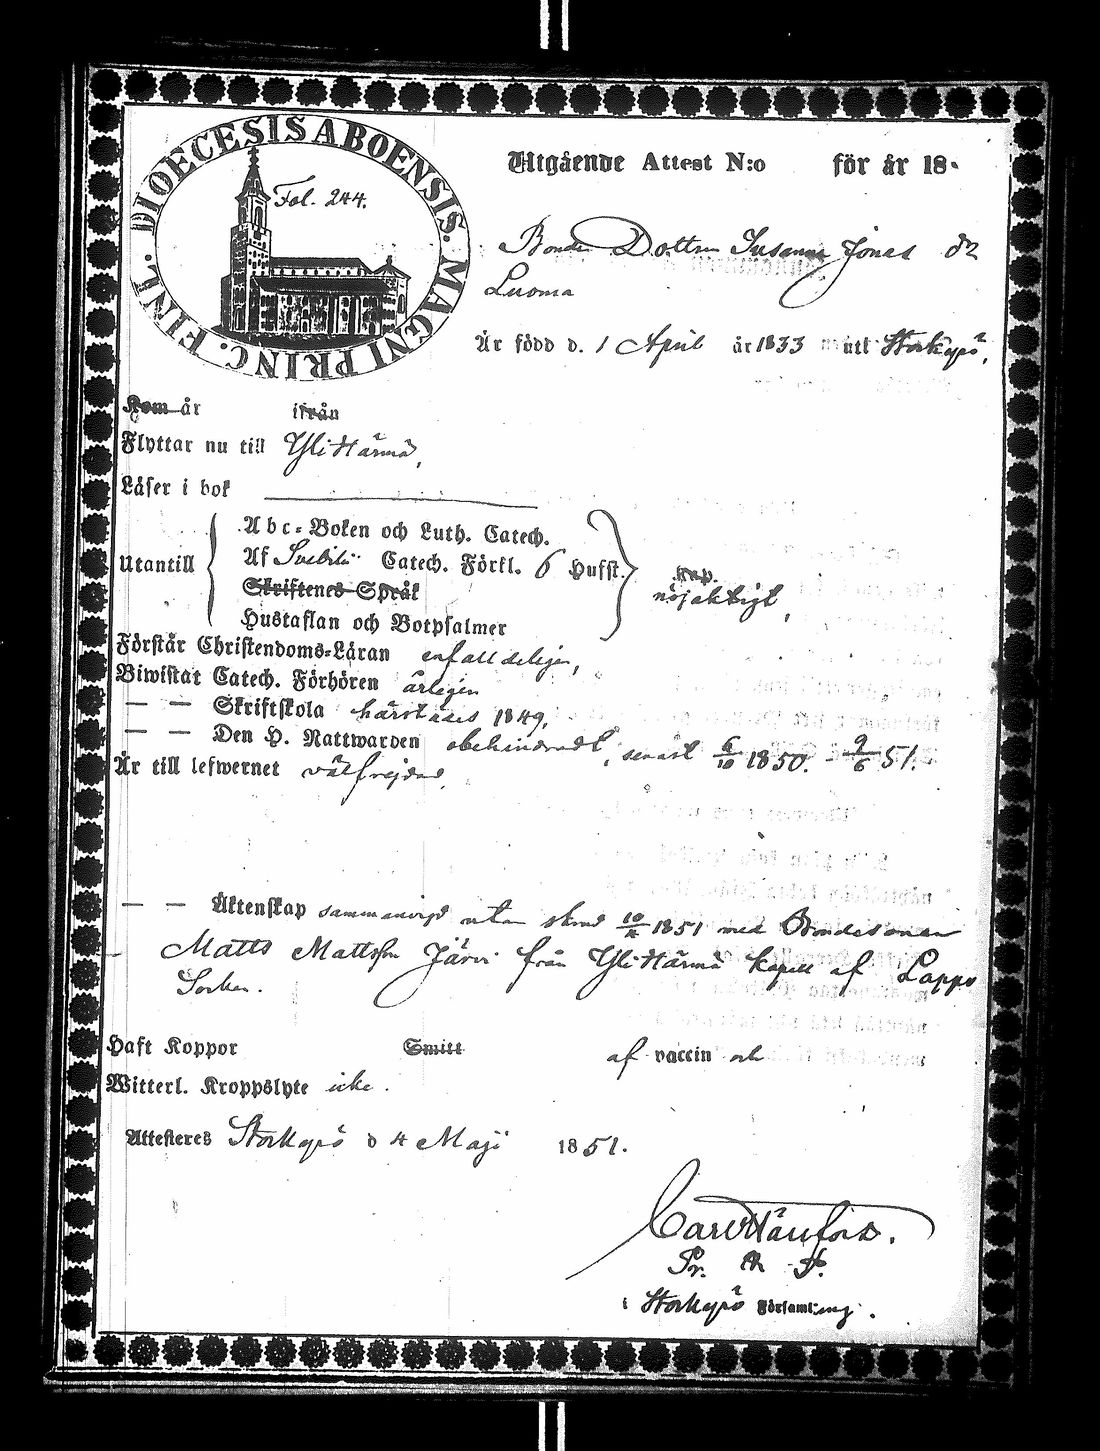 DIOECESIS ABOENSIS. MAGNI PRINC. FINL.
Fol. 244.
Utgående Attest N:o för år 18
Bonde Dottren Susanna Jonas dr
Luoma
Är född d. 1 April år 1833 uti Storkyrö.
Kom år ifrån
Flyttar nu till Yli Härmä,
Läser i bok
Utantill
Abc-Boken och Luth. Catech.
Af Svebilii Catech. Förkl. 6 Hufst.
Skriftenes Språk
Hustaflan och Botpsalmer
nöjaktigt,
Förstår Christendoms-Läran enfaldeligen,
Biwistat Catech. Förhören årligen
— — Skriftskola härstädes 1849,
— — Den H. Nattwarden obehindradt, senast 6/10 1850. - 9/6 51.
Är till lefwernet välfrejdad,
— — Äktenskap sammanvigd utan 1851 med Bondesonen
Matts Mattsson Järvi från Yli Härmä kapell af Lappo
Socken.
Haft Koppor Smitt af vaccin och
Witterl. Kroppslyte icke.
Attesteras Storkyrö d 4 Maji 1851.
Pr. P.
i Storkyrö Församling.